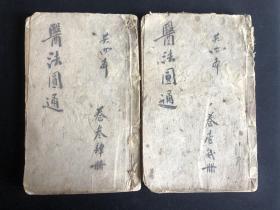 醫法圓通
共四本
卷叁肆册
醫法圓通
共四本
卷壹贰册